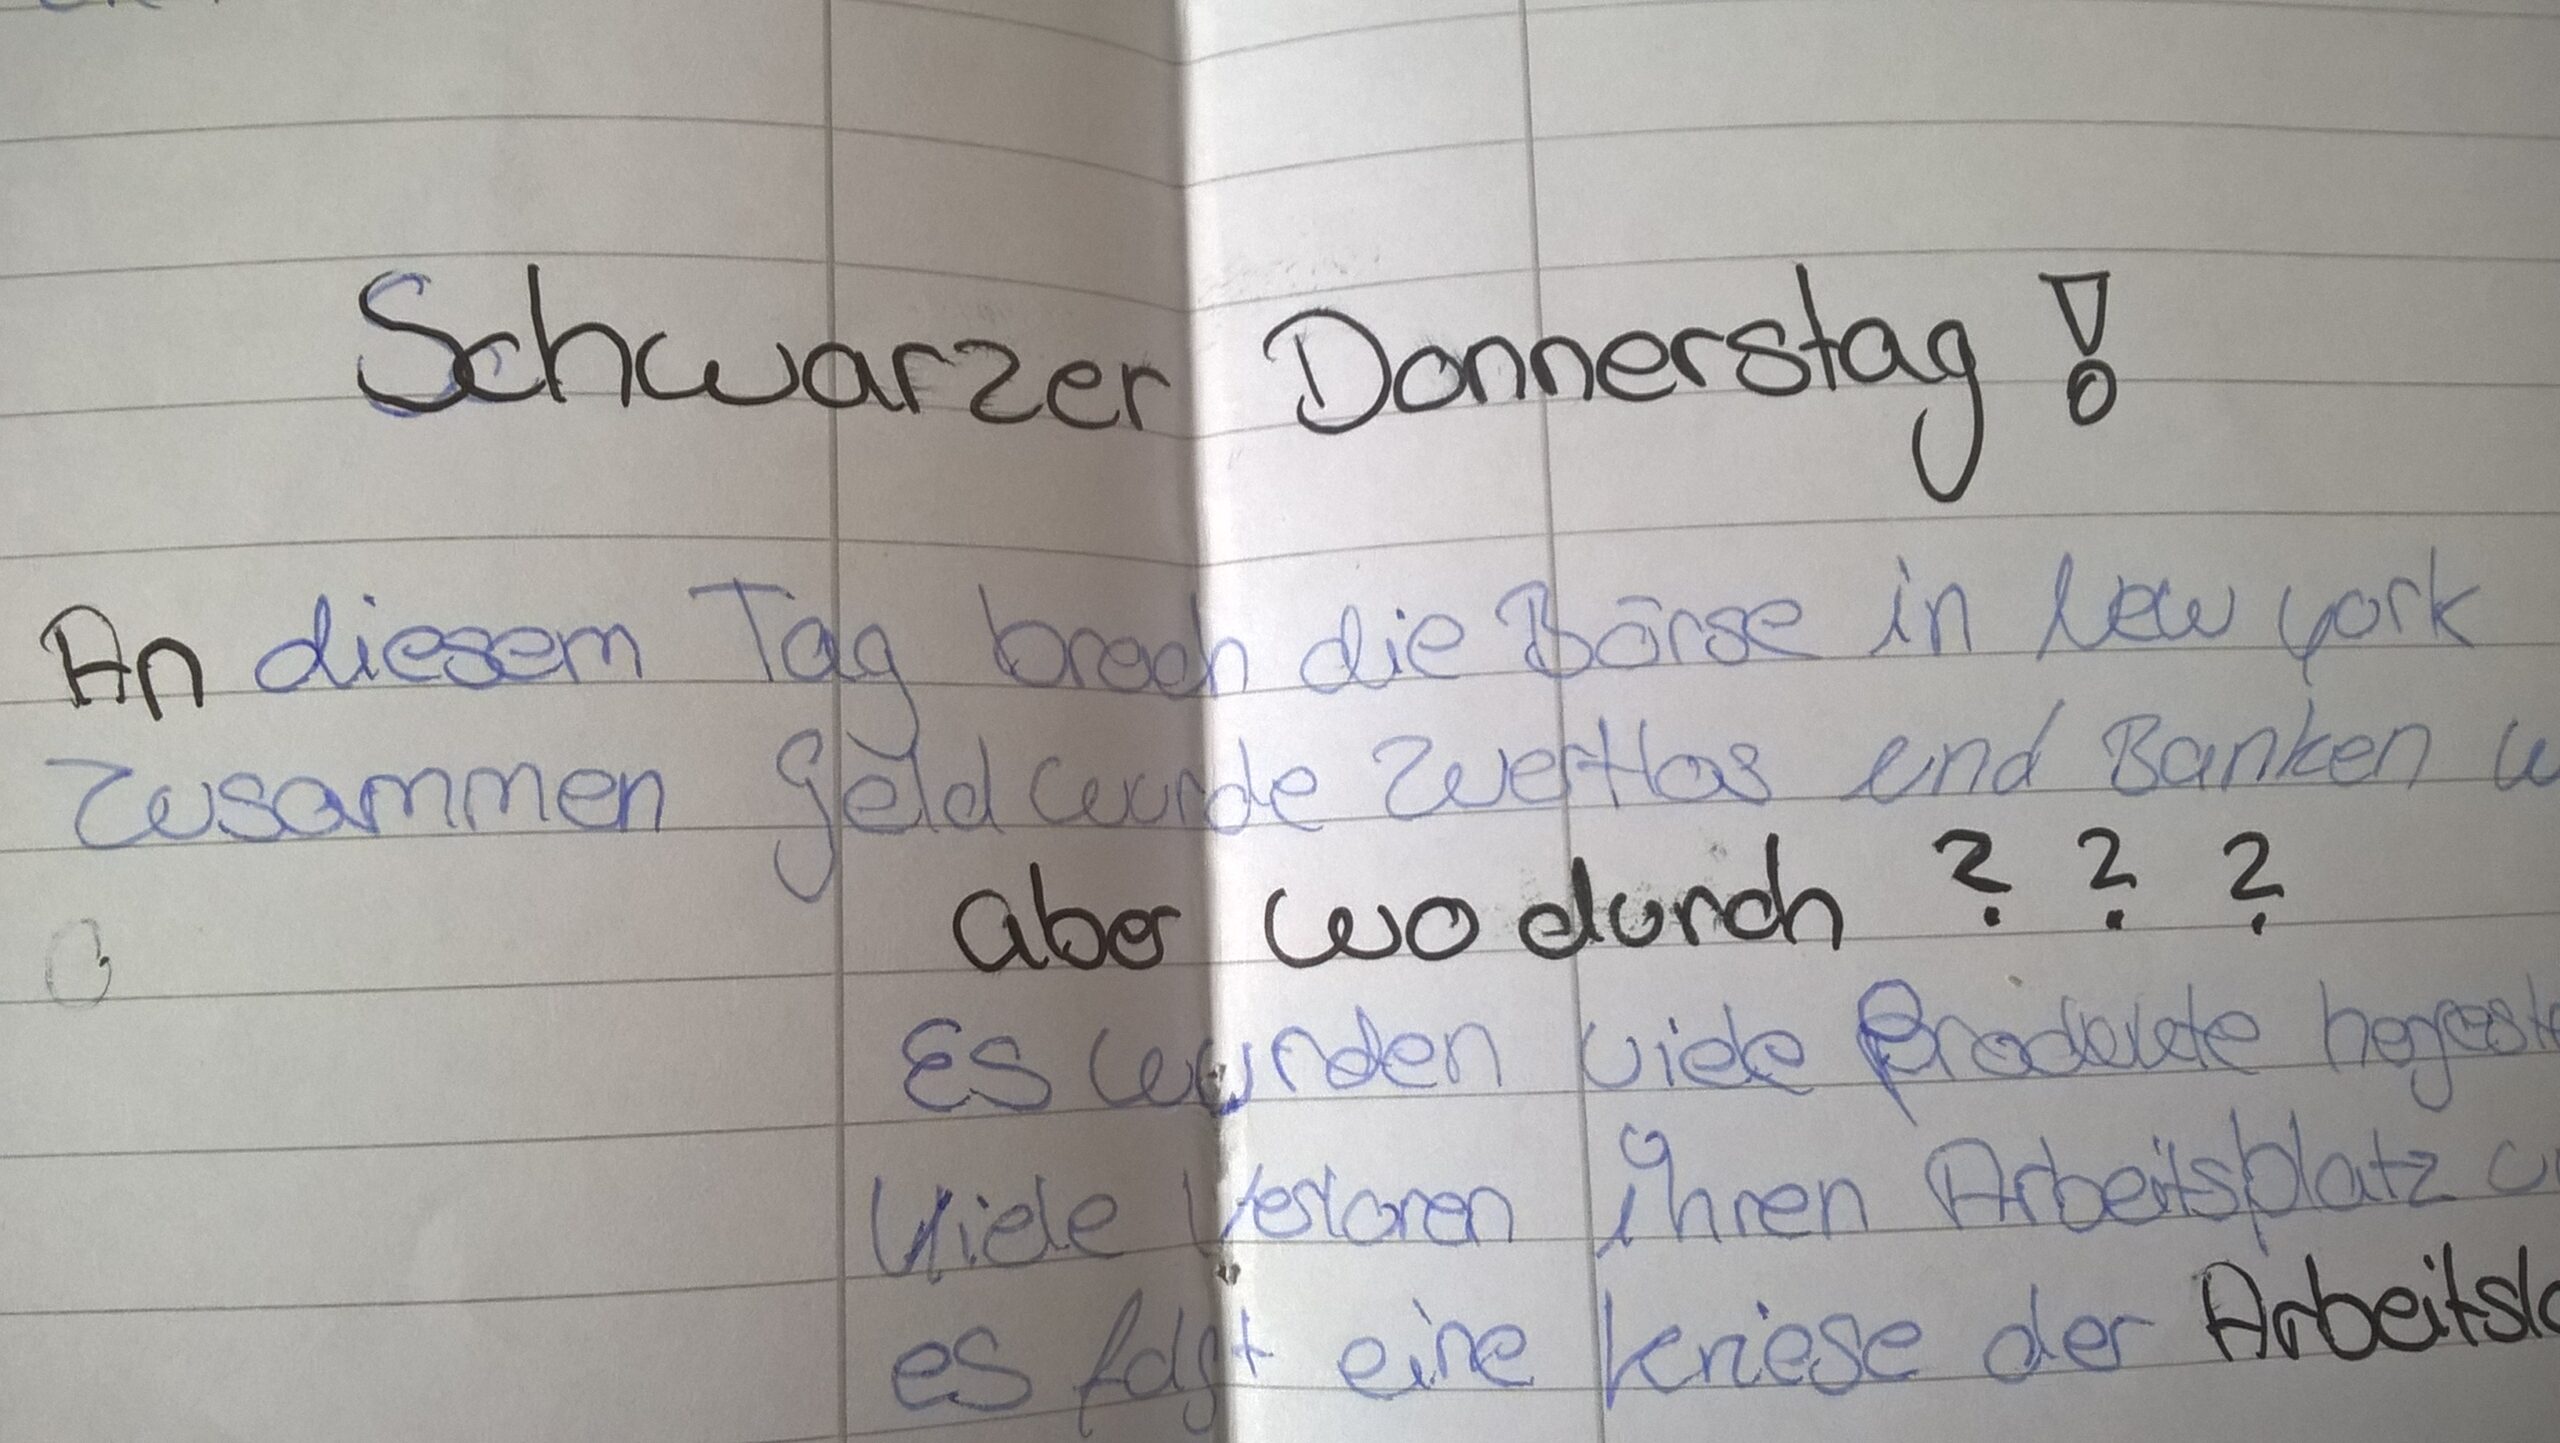 Schwarzer Donnerstag !
An diesem Tag brach die Börse in New york
zusammen geld wurde wertlos und Banken w
aber wodurch ? ? ?
Es wurden viele Produkte hergeste
Viele Verloren ihren Arbeitsplatz u
es folgt eine kriese der Arbeitslo